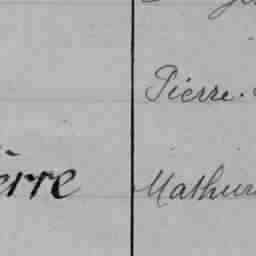 Pierre.
erre
Mathur